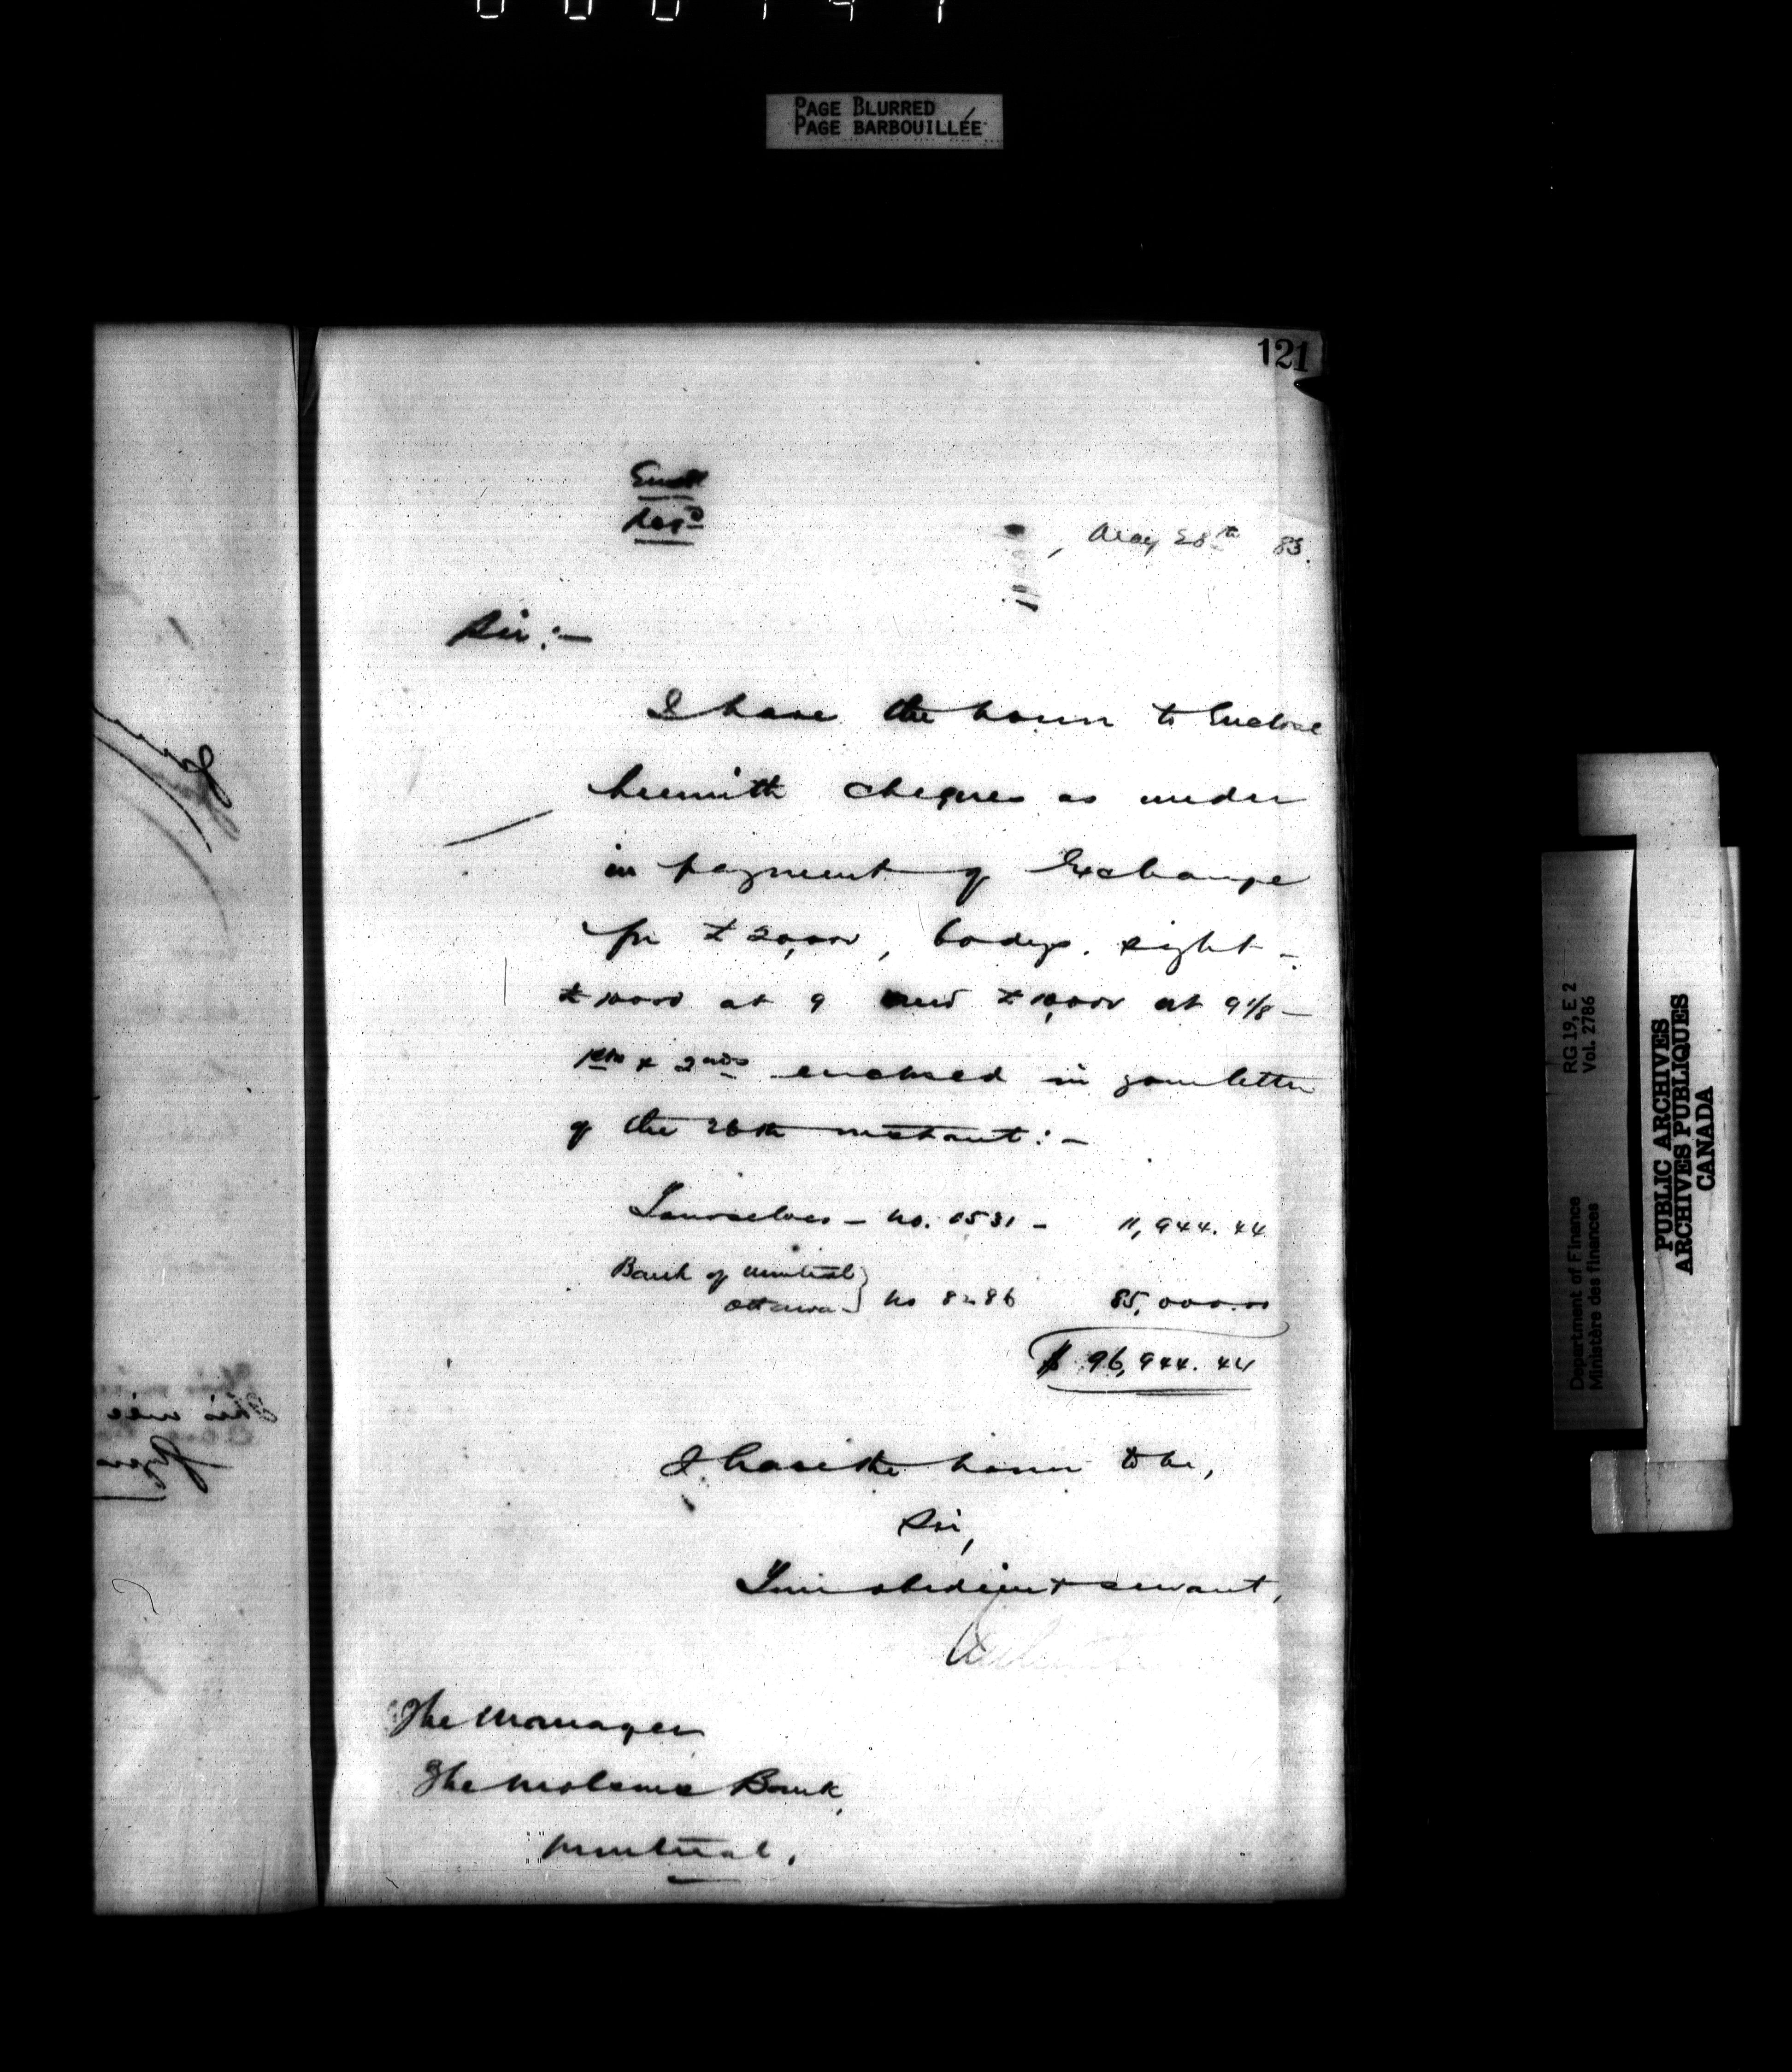 PAGE BLURRED
PAGE BARBOUILLÉE
121
Encl
Regd
, May 28th 83.
Sir:—
I have the honor to Enclose
herewith cheques as under
in payment of Exchange
for £20,000, 60 days. sight –
£10000 at 9 and £10,000 at 9 1/8 –
1sts & 2nds enclosed in your letter
of the 26th instant:–
Yourselves – No. 0531 – 11,944.44
Bank of Montreal
Ottawa } No 8286 85,000.00
$ 96,944.44
I have the honor to be,
Sir,
Your obedient servant,
The Manager
The Molsons Bank,
Montreal.
Department of Finance RG 19, E 2
Ministère des finances Vol. 2786
PUBLIC ARCHIVES
ARCHIVES PUBLIQUES
CANADA